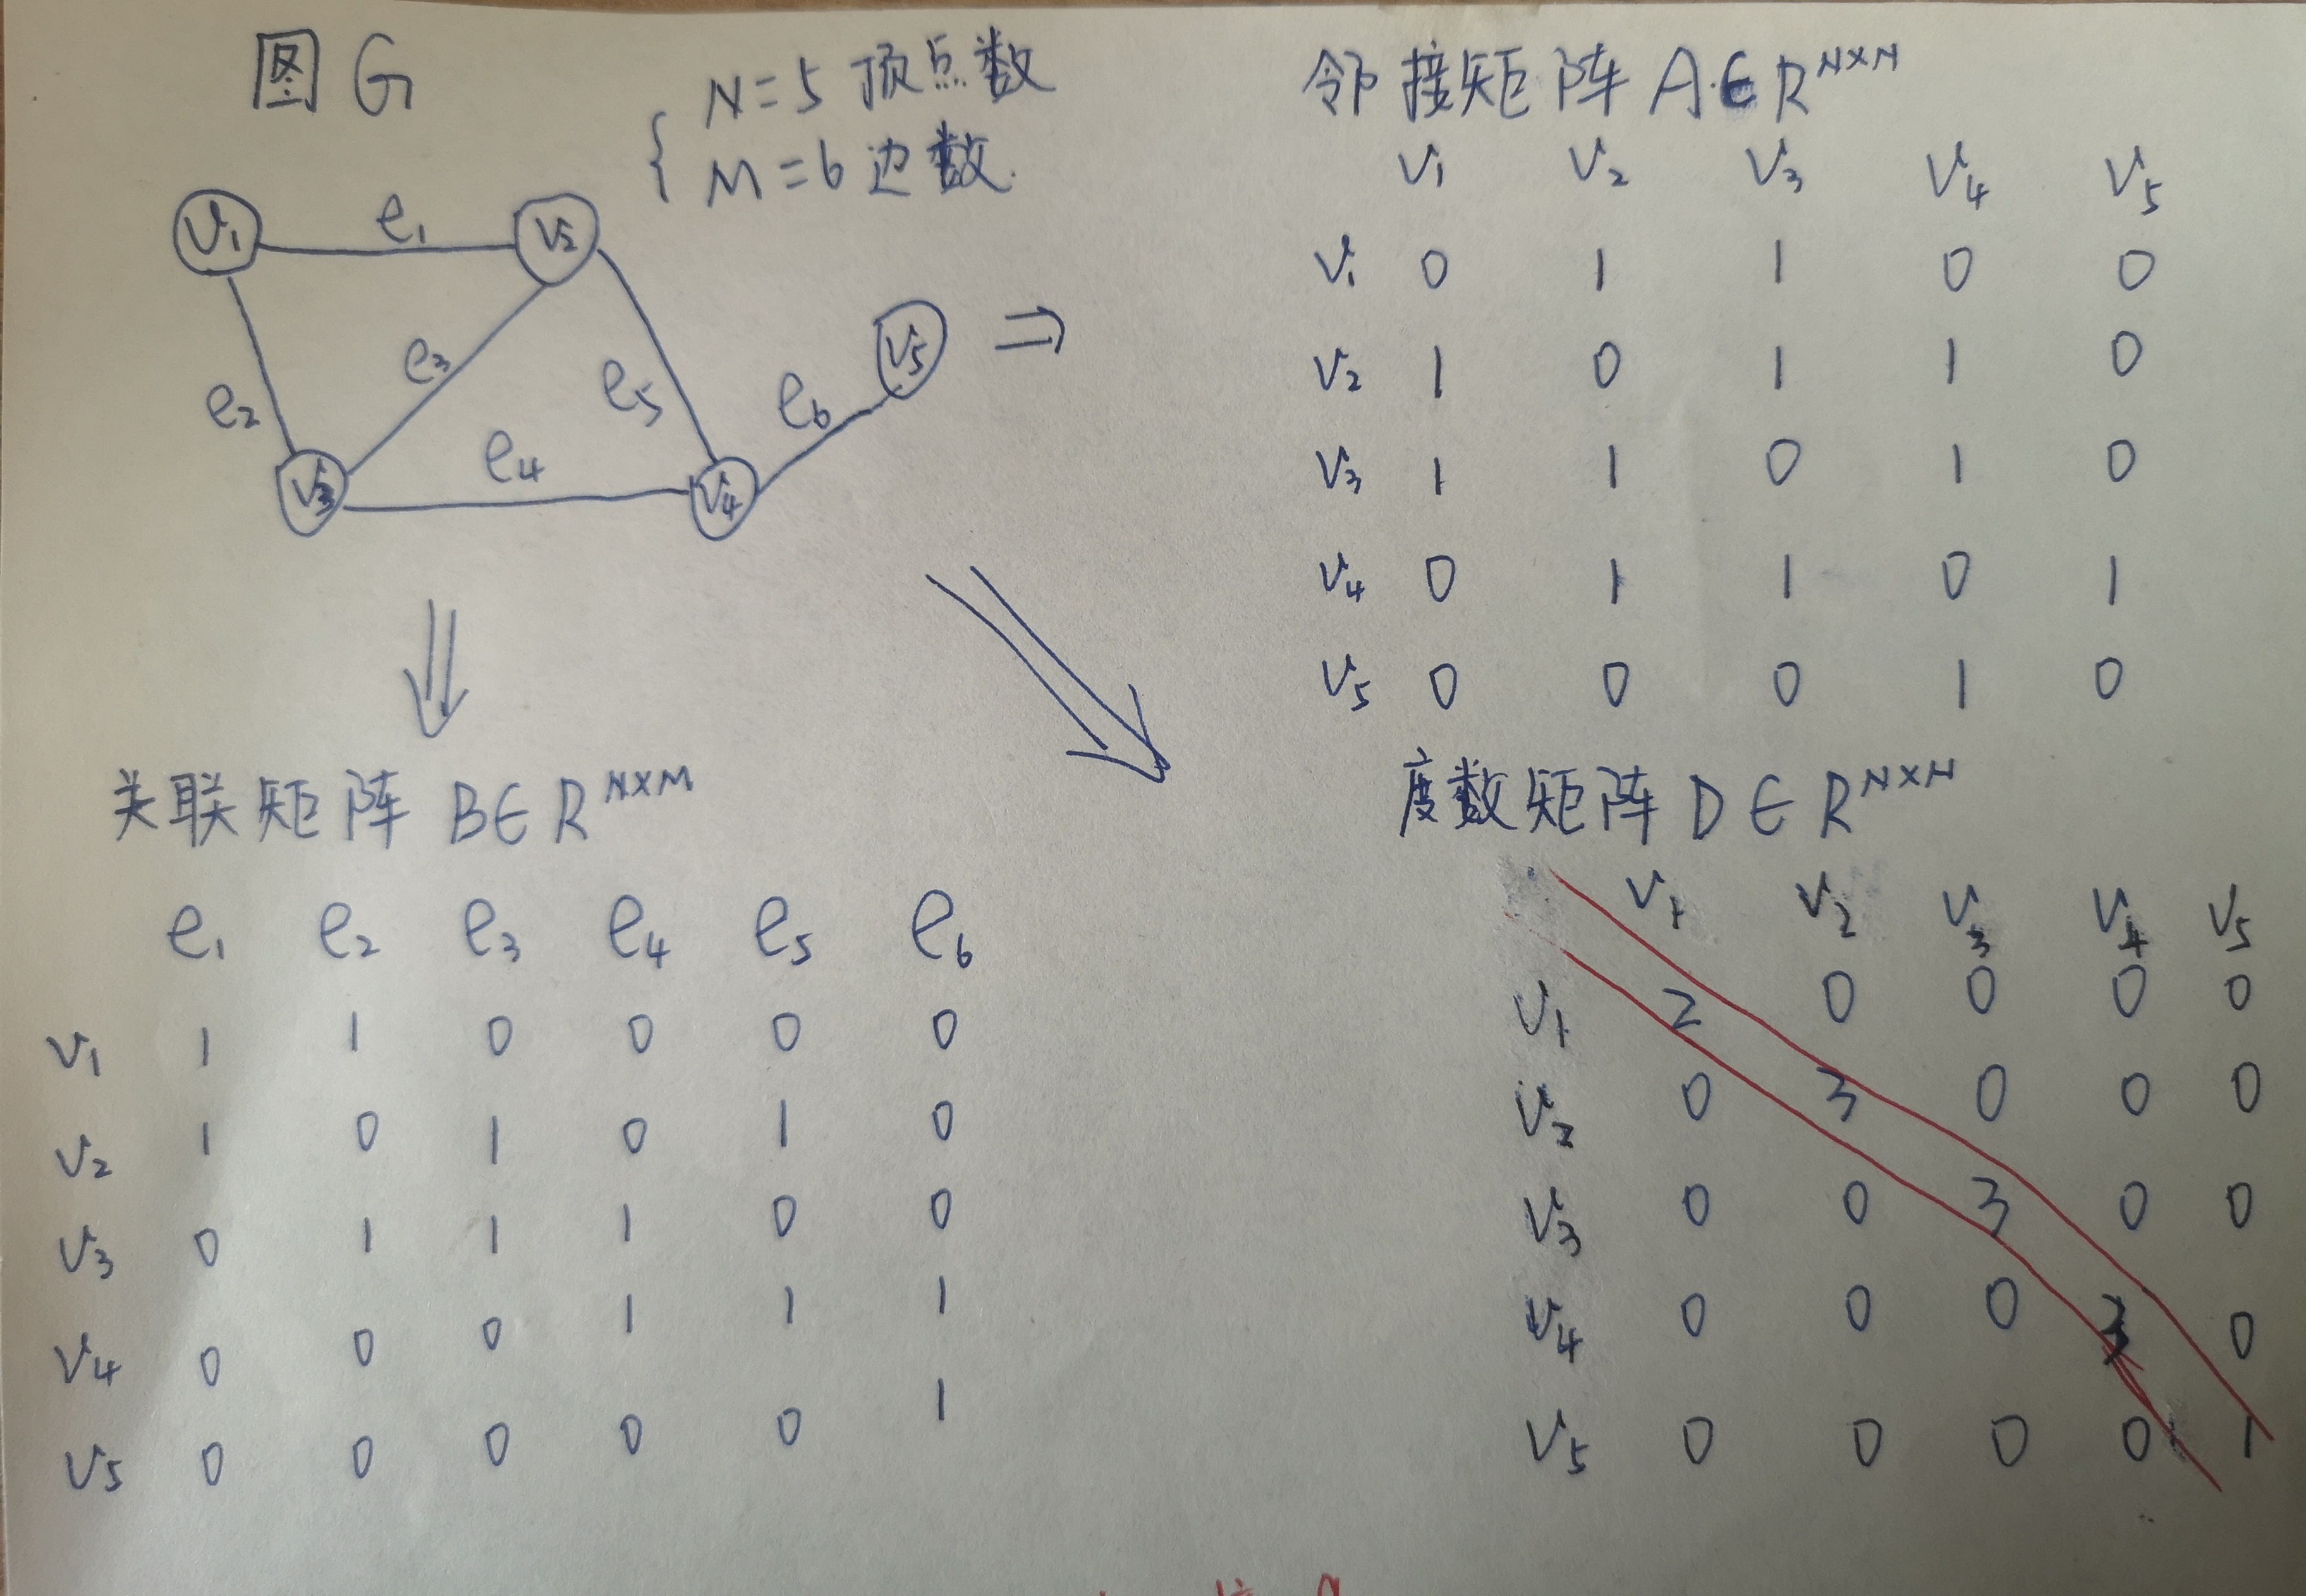 图 G
N=5 顶点数
M=6 边数.
v₁ e₁ v₂
e₂ e₃ e₅ e₆ v₅
v₃ e₄ v₄
⇒
邻接矩阵 A∈R^{N×N}
v₁ v₂ v₃ v₄ v₅
v₁ 0 1 1 0 0
v₂ 1 0 1 1 0
v₃ 1 1 0 1 0
v₄ 0 1 1 0 1
v₅ 0 0 0 1 0
关联矩阵 B∈R^{N×M}
e₁ e₂ e₃ e₄ e₅ e₆
v₁ 1 1 0 0 0 0
v₂ 1 0 1 0 1 0
v₃ 0 1 1 1 0 0
v₄ 0 0 0 1 1 1
v₅ 0 0 0 0 0 1
度数矩阵 D∈R^{N×N}
v₁ v₂ v₃ v₄ v₅
v₁ 2 0 0 0 0
v₂ 0 3 0 0 0
v₃ 0 0 3 0 0
v₄ 0 0 0 3 0
v₅ 0 0 0 0 1